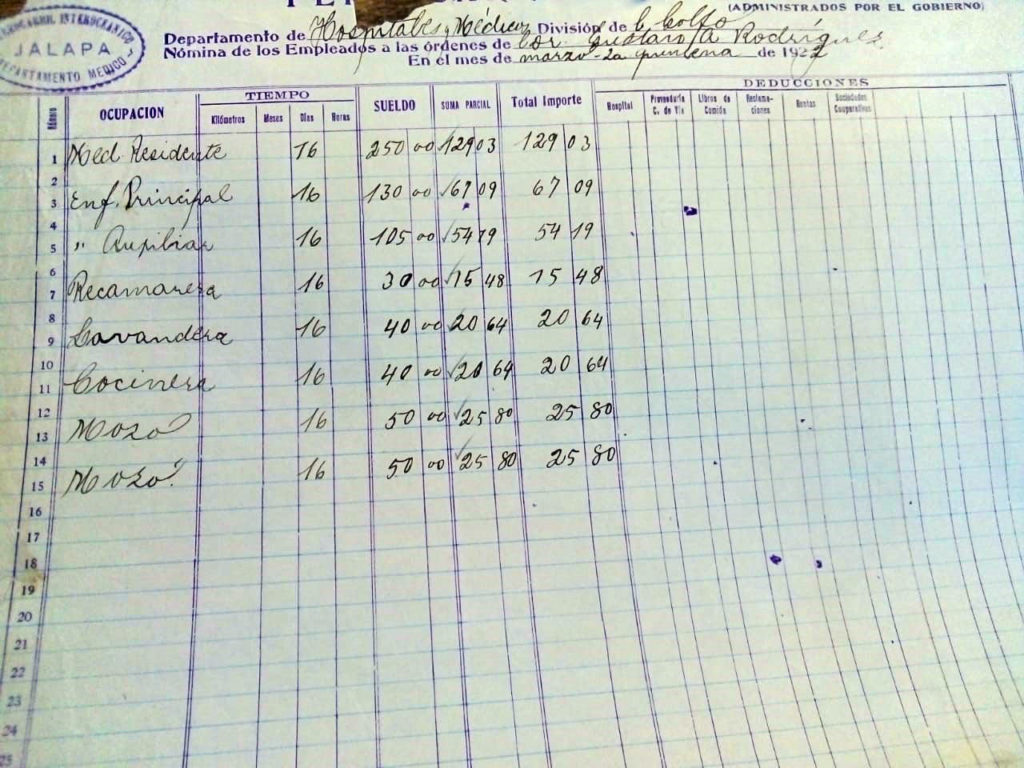 (ADMINISTRADOS POR EL GOBIERNO)
INTEROCEANICO
JALAPA
DEPARTAMENTO MEDICO
Departamento de Hospitales y Médico División de
Nómina de los Empleados a las órdenes de Dr. Gustavo A Rodríguez
En el mes de marzo - 2a quincena de 192
DEDUCCIONES
OCUPACION TIEMPO SUELDO SUMA PARCIAL Total Importe
Kilómetros Meses Días Horas Hospital Proveeduría C. de Vía Libros de Comida Reclamaciones Rentas Sociedades Cooperativas
1 Med Residente 16 250 00 129 03 129 03
2
3 Enf. Principal 16 130 00 67 09 67 09
4
5 " Auxiliar 16 105 00 54 19 54 19
6
7 Recamarera 16 30 00 15 48 15 48
8
9 Lavandera 16 40 00 20 64 20 64
10
11 Cocinera 16 40 00 20 64 20 64
12
13 Mozo 16 50 00 25 80 25 80
14
15 Mozo 16 50 00 25 80 25 80
16
17
18
19
20
21
22
23
24
25